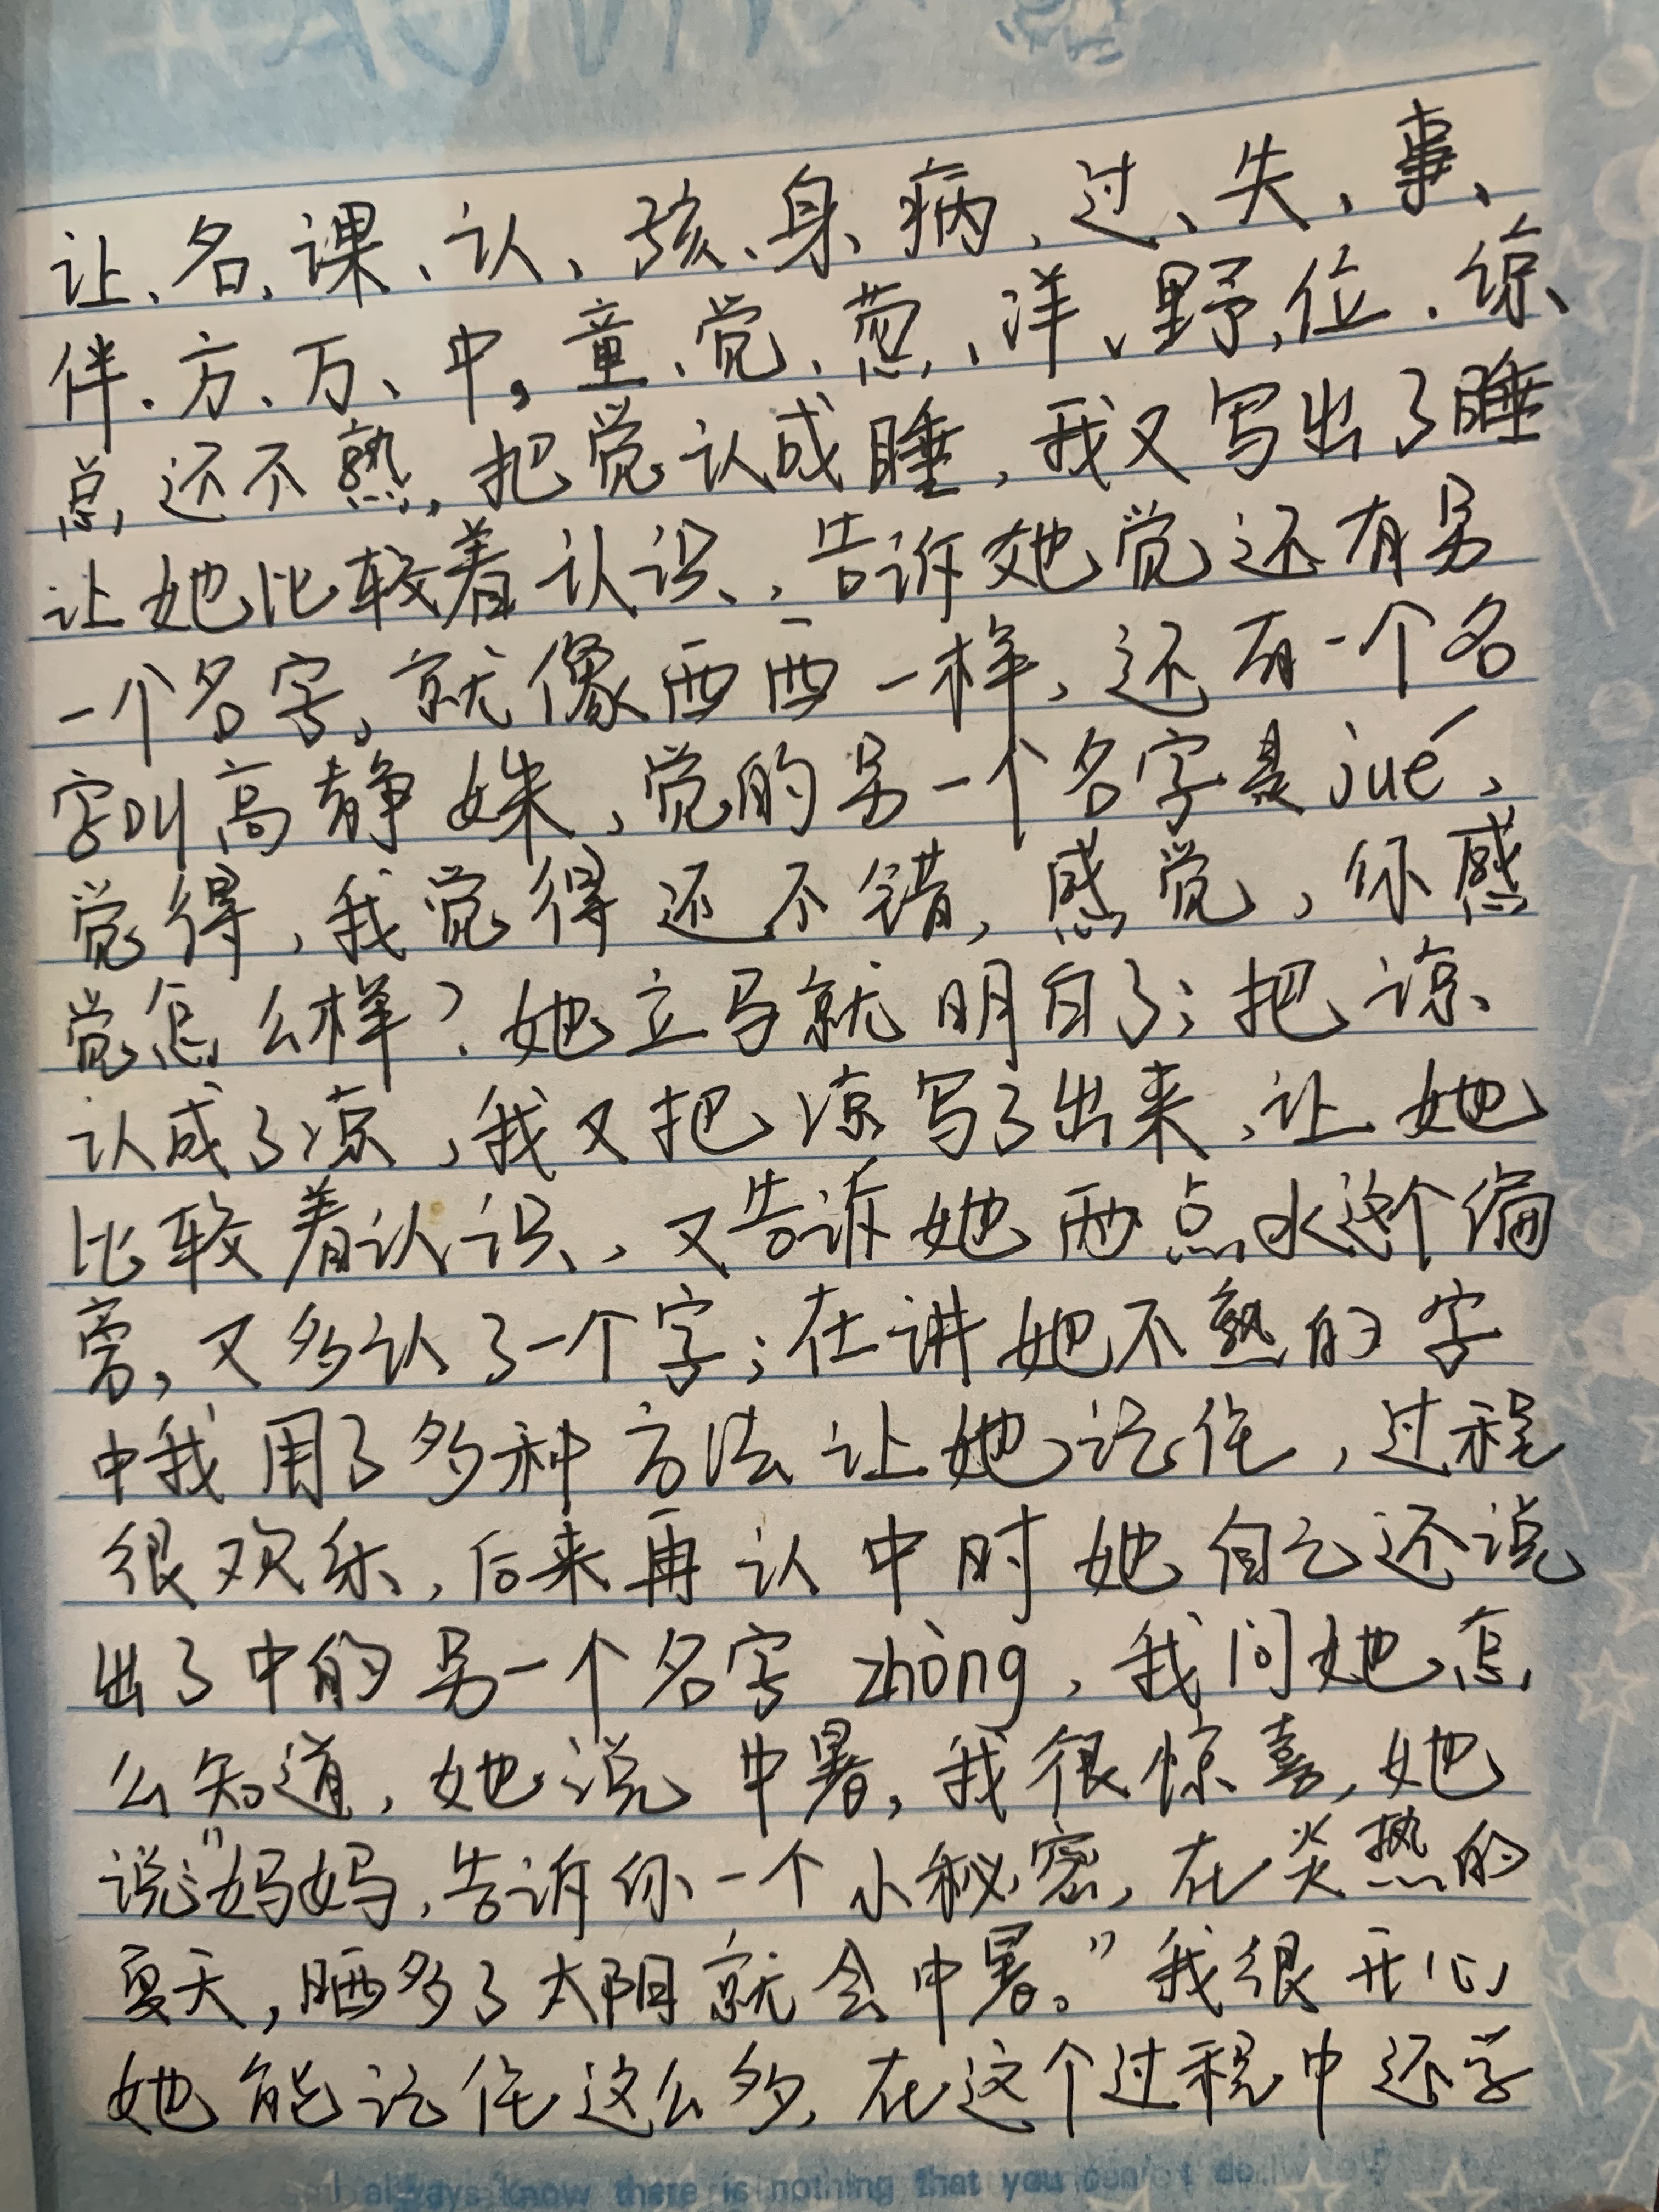 让、名、课、认、孩、身、病、过、失、事、
伴、方、万、中,童、觉、葱、洋、野,位、谅、
总,还不熟,把觉认成睡,我又写出了睡
让她比较着认识,告诉她觉还有另
一个名字,就像西西一样,还有一个名
字叫高静姝,觉的另一个名字是jué,
觉得,我觉得还不错,感觉,你感
觉怎么样?她立马就明白了;把谅
认成了凉,我又把凉写了出来,让她
比较着认识,又告诉她两点水这个偏
旁,又多认了一个字;在讲她不熟的字
中我用了多种方法让她记住,过程
很欢乐,后来再认中时她自己还说
出了中的另一个名字zhòng,我问她怎
么知道,她说中暑,我很惊喜,她
说:"妈妈,告诉你一个小秘密,在炎热的
夏天,晒多了太阳就会中暑。"我很开心
她能记住这么多,在这个过程中还学
I always know there is nothing that you can't do.